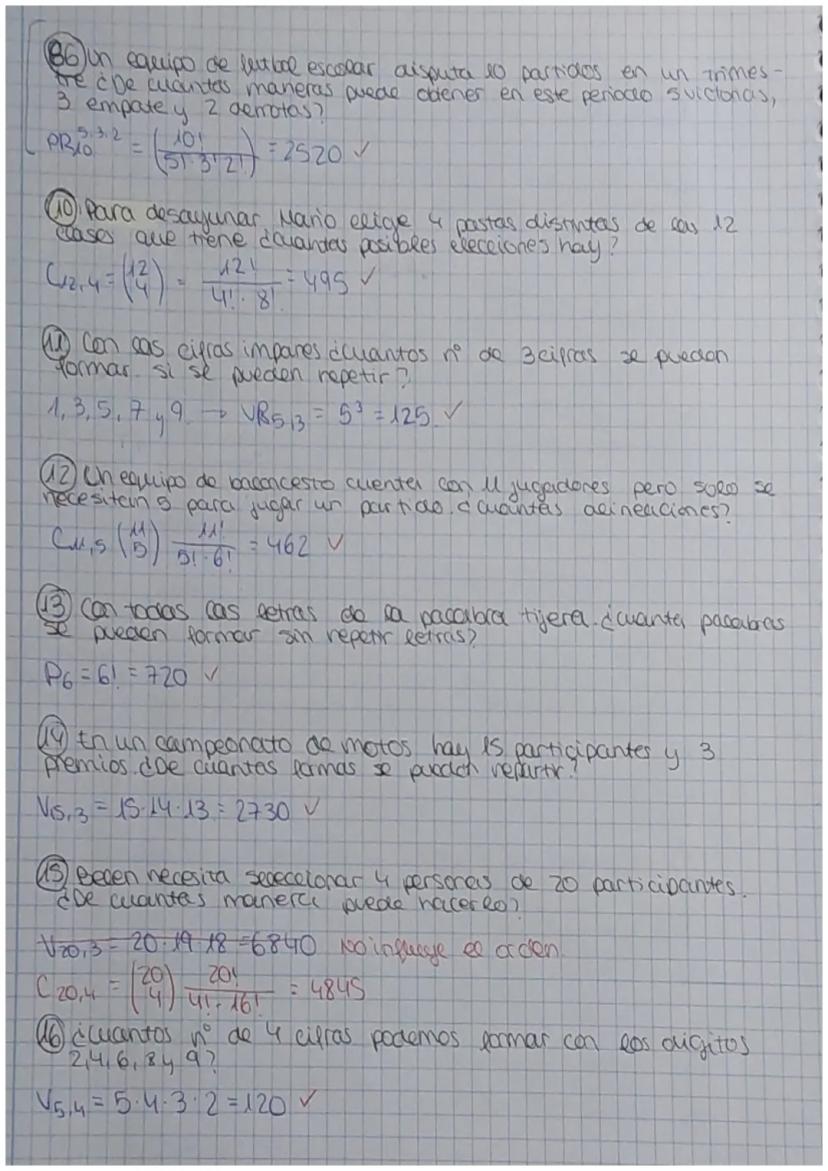 86 Un equipo de futbol escolar disputa 10 partidos en un trimes-
tre ¿De cuantas maneras puede obtener en este periodo 5 victorias,
3 empate y 2 derrotas?
PR₁₀⁵·³·² = (10! / 5!·3!·2!) = 2520 ✓
10 Para desayunar Mario elige 4 pastas distintas de las 12
clases que tiene ¿cuantas posibles elecciones hay?
C₁₂,₄ = (12 4) = 12! / 4!·8! = 495 ✓
11 Con las cifras impares ¿cuantos nº de 3 cifras se pueden
formar si se pueden repetir?
1, 3, 5, 7 y 9 → VR₅,₃ = 5³ = 125 ✓
12 Un equipo de baloncesto cuenta con 11 jugadores pero solo se
necesitan 5 para jugar un partido ¿cuantas alineaciones?
C₁₁,₅ (11 5) 11! / 5!·6! = 462 ✓
13 Con todas las letras de la palabra tijera ¿cuanta palabras
se pueden formar sin repetir letras?
P₆ = 6! = 720 ✓
14 En un campeonato de motos hay 15 participantes y 3
premios ¿De cuantas formas se pueden repartir?
V₁₅,₃ = 15·14·13 = 2730 ✓
15 Belen necesita seleccionar 4 personas de 20 participantes.
¿De cuantas manera puede hacerlo?
V₂₀,₃ = 20·19·18 = 6840 No influye el orden
C₂₀,₄ = (20 4) 20! / 4!·16! = 4845
16 ¿cuantos nº de 4 cifras podemos formar con los digitos
2, 4, 6, 8 y 9?
V₅,₄ = 5·4·3·2 = 120 ✓